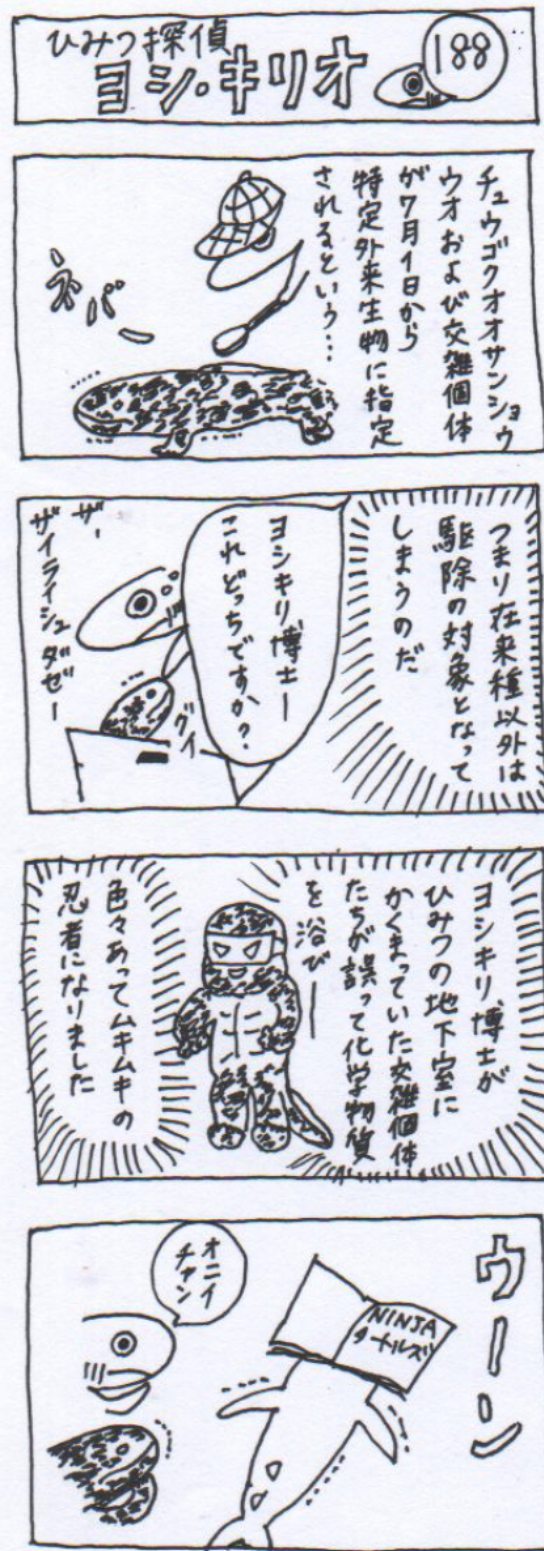 ひみつ探偵
ヨシ・キリオ
188
チュウゴクオオサンショウ
ウオおよび交雑個体
が7月1日から
特定外来生物に指定
されるという…
ネバー
つまり在来種以外は
駆除の対象となって
しまうのだ
ヨシキリ博士ー
これどっちですか?
グイ
ザ、
ザイライシュダゼー
ヨシキリ博士が
ひみつの地下室に
かくまっていた交雑個体
たちが誤って化学物質
を浴びー
色々あってムキムキの
忍者になりました
ウーン
NINJA
タートルズ
オニイ
チャン